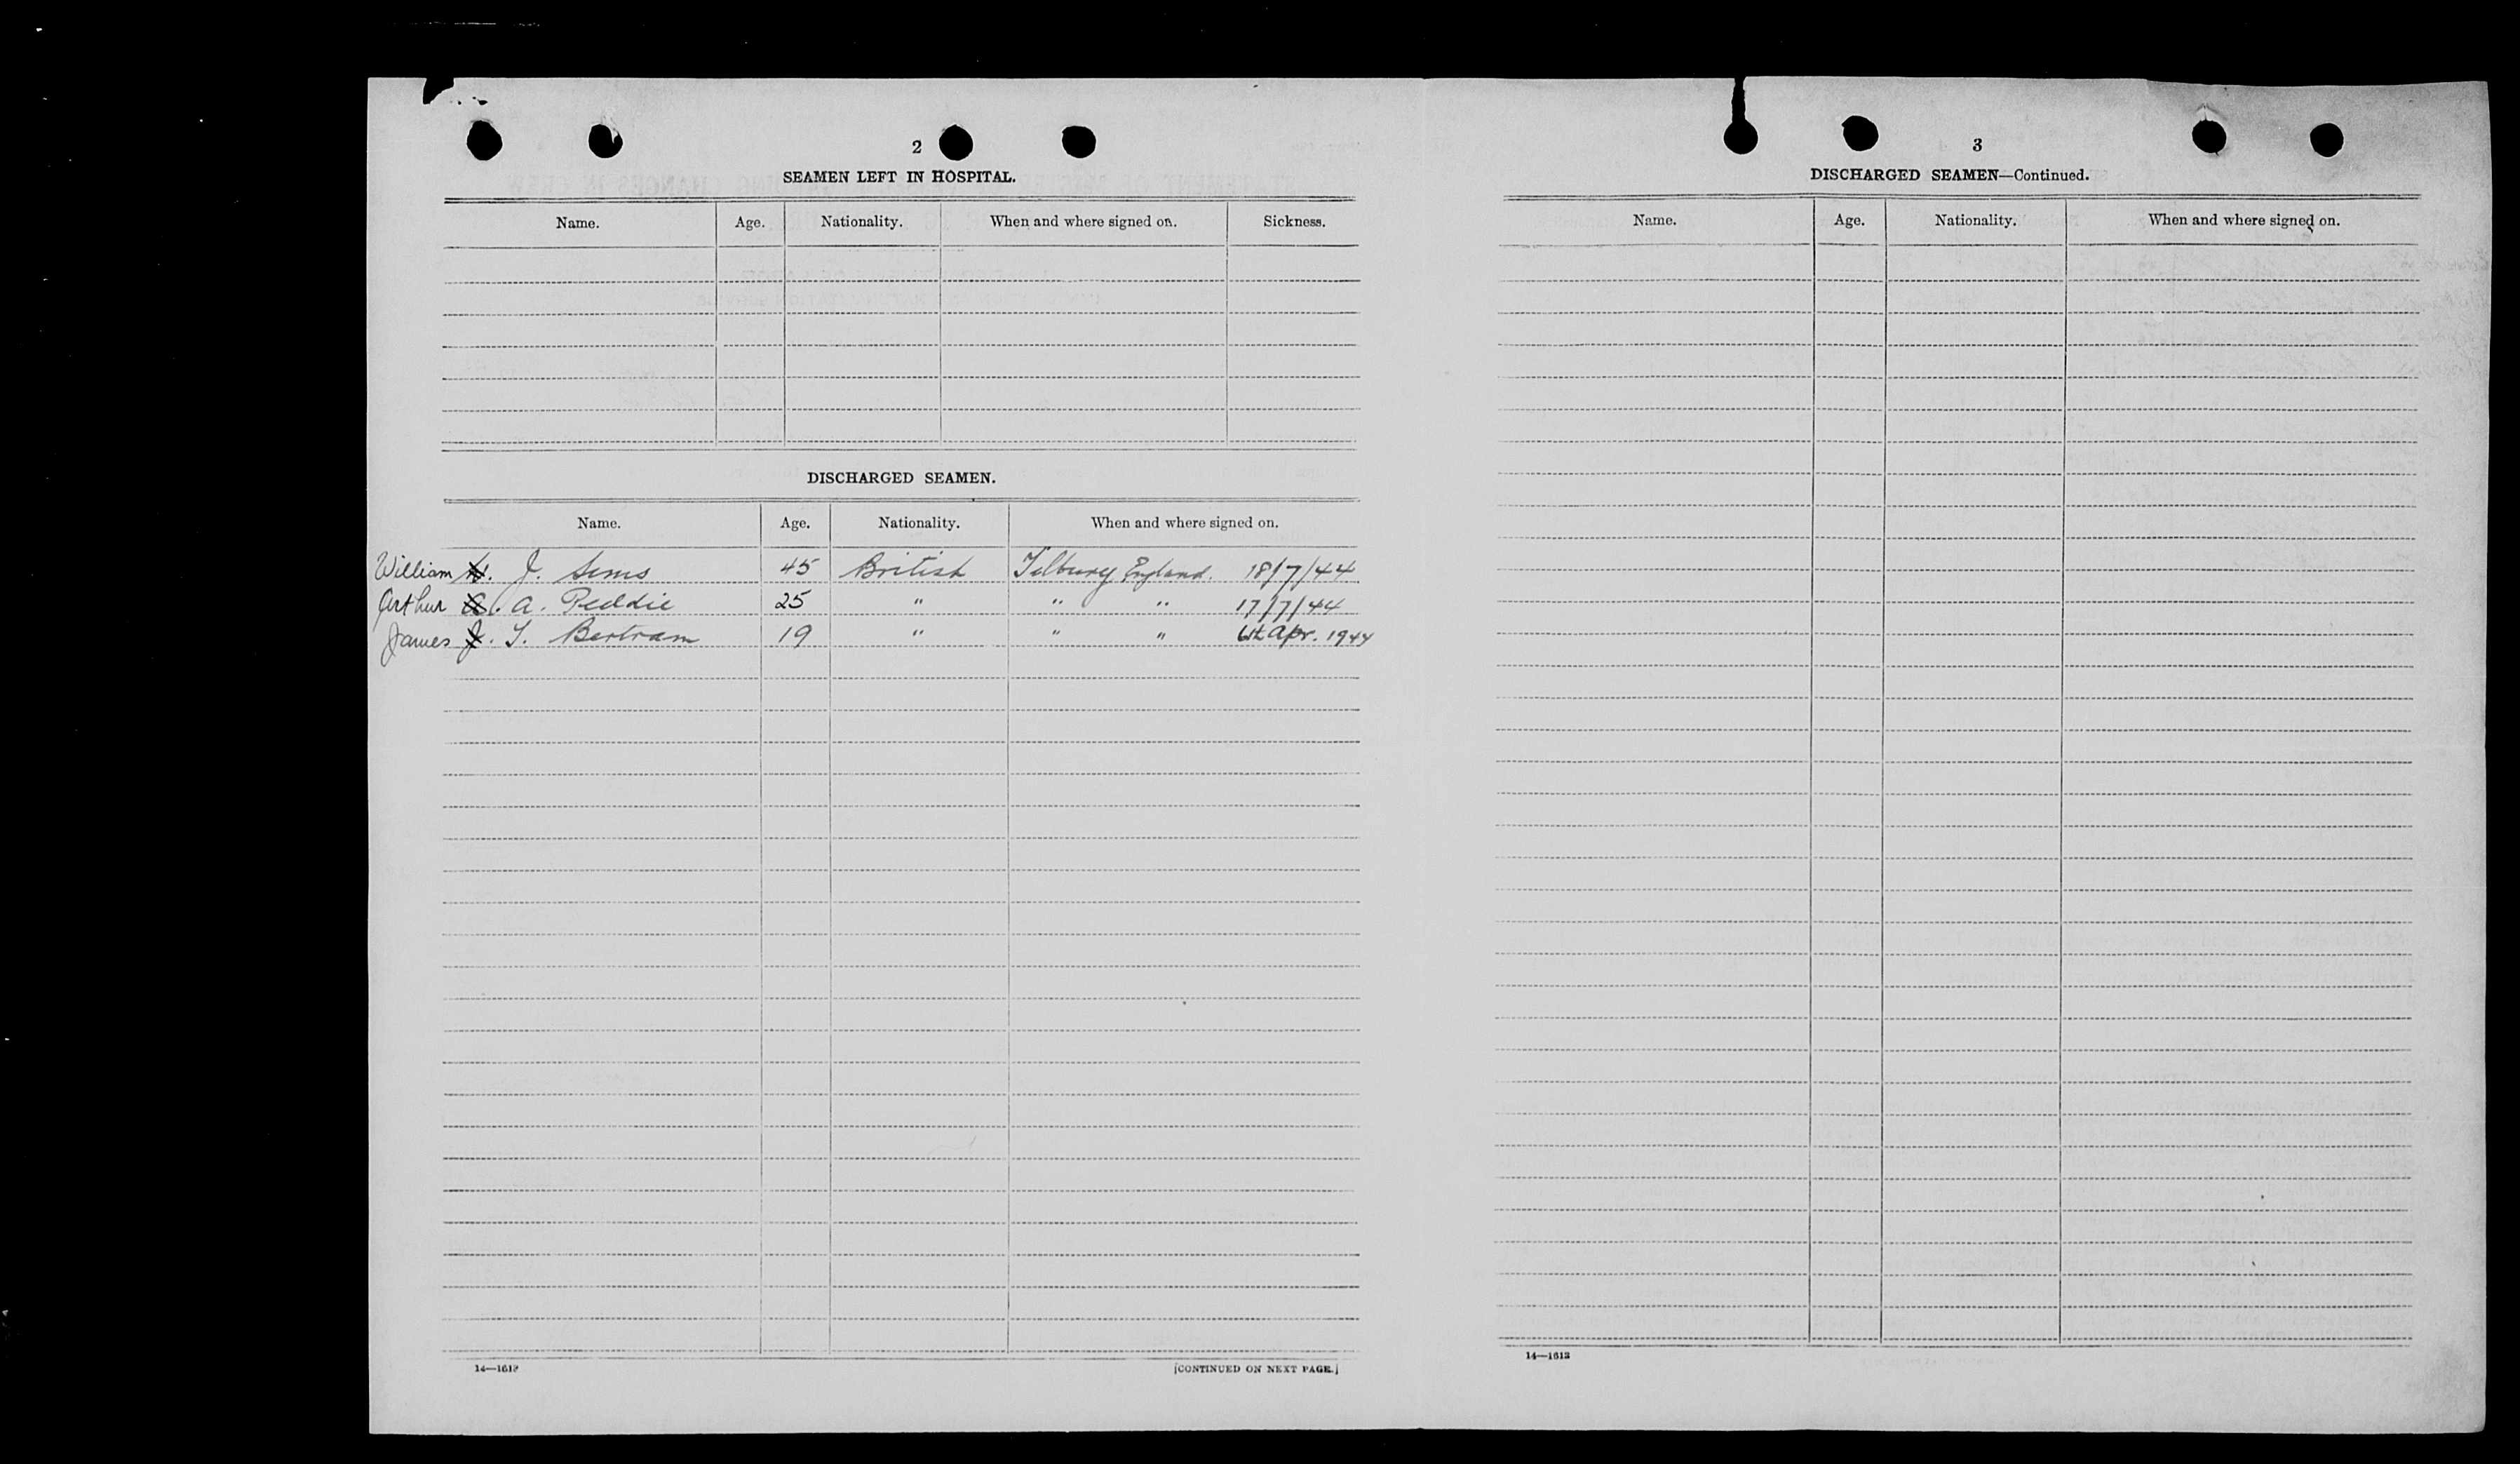 2
SEAMEN LEFT IN HOSPITAL.
Name. Age. Nationality. When and where signed on. Sickness.
DISCHARGED SEAMEN.
Name. Age. Nationality. When and where signed on.
William W. J. Sims 45 British Tilbury England. 18/7/44
Arthur A. A. Peddie 25 " " " 17/7/44
James J. T. Bertram 19 " " " Apr. 1944
14—1612
[CONTINUED ON NEXT PAGE.]
3
DISCHARGED SEAMEN—Continued.
Name. Age. Nationality. When and where signed on.
14—1612